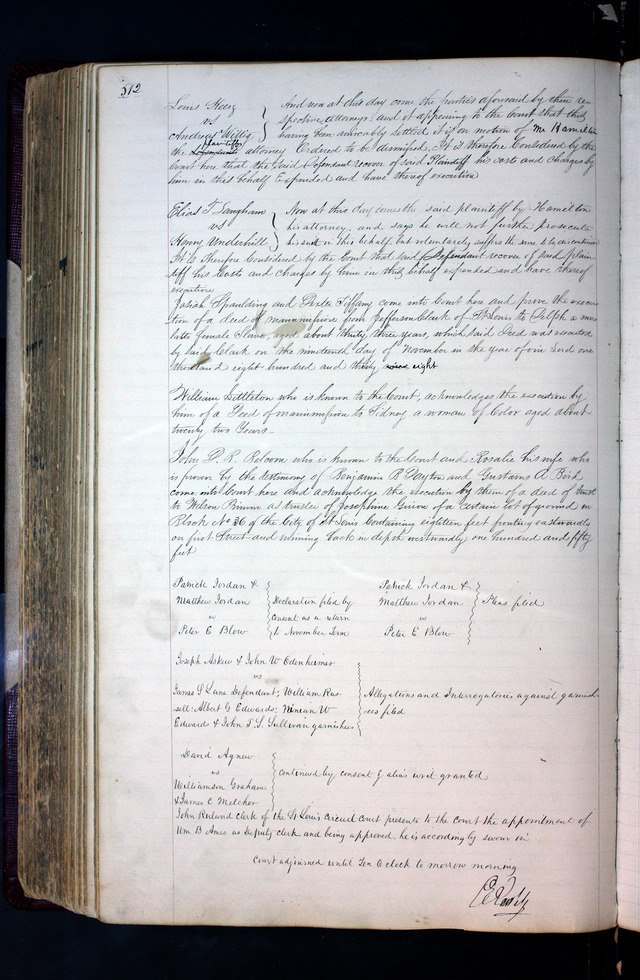 512
Louis Steig } And now at this day come the parties aforesaid by their re-
vs } spective attorneys and it appearing to the Court that this
Andreas Willig } having been amicably settled it is on motion of Mr Hamilton
plaintiffs
the attorney Ordered to be dismissed. It is therefore Considered by the
Court here that the said Defendant recover of said Plaintiff his costs and charges by
him in this behalf Expended and have thereof execution
Elias T. Langham } Now at this day comes the said plaintiff by Hamilton
vs } his attorney, and says he will not further prosecute
Henry Underhill } his suit in this behalf, but voluntarily suffers the same to be discontinued
It is Therefore Considered by the Court that said Defendant recover of said plain-
tiff his Costs and charges by him in this behalf expended and have thereof
execution
Josiah Spaulding and Dexter Tiffany come into Court here and prove the execu-
tion of a deed of manumission from Jefferson Clark of St Louis to Delph a mu-
latto female Slave, aged about thirty three years, which said Deed was executed
by said Clark on the nineteenth day of November in the year of our Lord one
thousand eight hundred and thirty eight
William Littleton who is known to the Court, acknowledges the execution by
him of a Deed of manumission to Sidney a woman of Color aged about
twenty two Years-
John D. R. Belcom who is known to the Court and Rosalie his wife who
is proven by the testimony of Benjamin B Dayton and Gustavus A Bird
come into Court here and acknowledge the execution by them of a deed of trust
to Wilson Primm as trustee of Josephine Guion of a certain lot of ground in
Block No 36 of the City of St Louis Containing eighteen feet fronting eastwardly
on first Street and running back in depth westwardly one hundred and fifty
feet
Patrick Jordan &
Matthew Jordan } Declaration filed by
vs } consent as a return
Peter E Blow } to November Term
Patrick Jordan &
Matthew Jordan } Pleas filed
vs
Peter E Blow
Joseph Askew & John W Edenheimer
vs
James S Lane Defendant; William Rus- } Allegations and Interrogatories against garnish-
sell: Albert G Edwards: Ninian W } ees filed
Edwards & John T. S. Sullivan garnishees
David Agnew
vs } continued by consent & alias writ granted
Williamson Graham
& James C Melcher
John Ruland clerk of the St Louis circuit court presents to the court the appointment of
Wm B Ames as deputy clerk and being approved he is accordingly sworn in
Court adjourned until Ten O clock to morrow morning